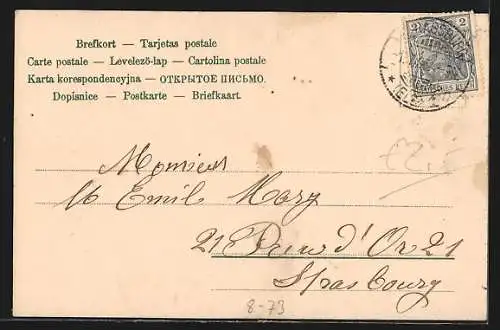 Brefkort — Tarjetas postale
Carte postale — Levelező-lap — Cartolina postale
Karta korespondencyjna — ОТКРЫТОЕ ПИСЬМО.
Dopisnice — Postkarte — Briefkaart.
2 2
Monsieur
Emile Mary
21 d'Or 21
Strasbourg
8-73